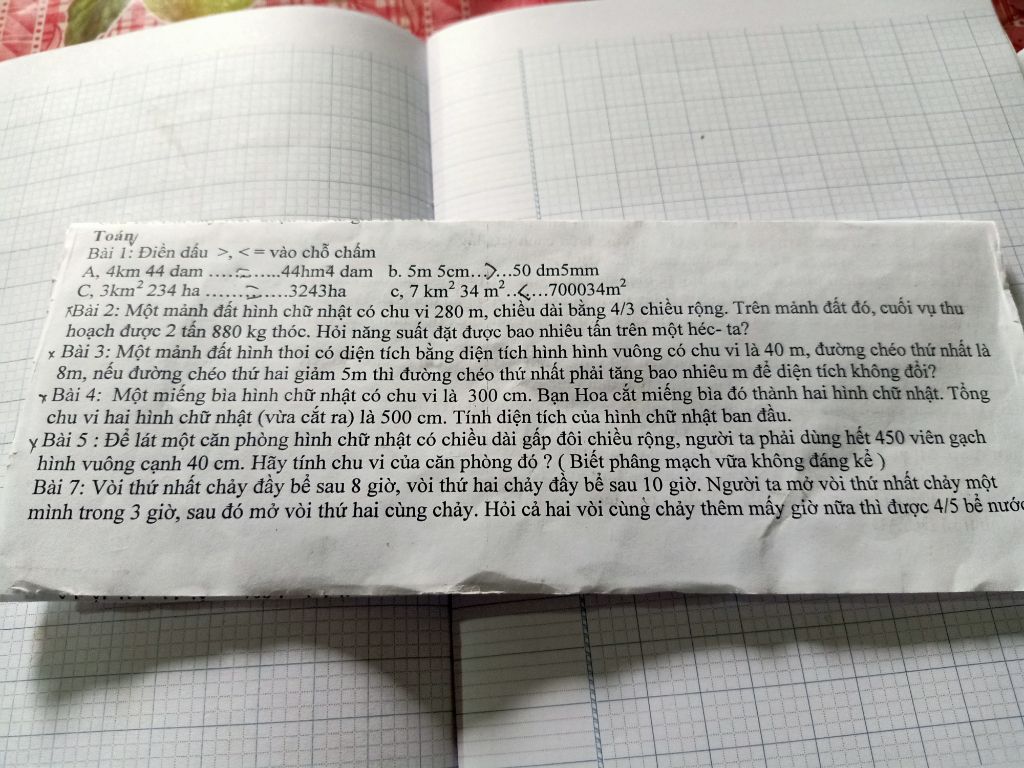 Toán
Bài 1: Điền dấu >, < = vào chỗ chấm
A, 4km 44 dam ....=.....44hm4 dam b. 5m 5cm...>...50 dm5mm
C, 3km² 234 ha .......=.....3243ha c, 7 km² 34 m²..<....700034m²
Bài 2: Một mảnh đất hình chữ nhật có chu vi 280 m, chiều dài bằng 4/3 chiều rộng. Trên mảnh đất đó, cuối vụ thu
hoạch được 2 tấn 880 kg thóc. Hỏi năng suất đặt được bao nhiêu tấn trên một héc- ta?
x Bài 3: Một mảnh đất hình thoi có diện tích bằng diện tích hình hình vuông có chu vi là 40 m, đường chéo thứ nhất là
8m, nếu đường chéo thứ hai giảm 5m thì đường chéo thứ nhất phải tăng bao nhiêu m để diện tích không đổi?
Bài 4: Một miếng bìa hình chữ nhật có chu vi là 300 cm. Bạn Hoa cắt miếng bìa đó thành hai hình chữ nhật. Tổng
chu vi hai hình chữ nhật (vừa cắt ra) là 500 cm. Tính diện tích của hình chữ nhật ban đầu.
Bài 5 : Để lát một căn phòng hình chữ nhật có chiều dài gấp đôi chiều rộng, người ta phải dùng hết 450 viên gạch
hình vuông cạnh 40 cm. Hãy tính chu vi của căn phòng đó ? ( Biết phâng mạch vữa không đáng kể )
Bài 7: Vòi thứ nhất chảy đầy bể sau 8 giờ, vòi thứ hai chảy đầy bể sau 10 giờ. Người ta mở vòi thứ nhất chảy một
mình trong 3 giờ, sau đó mở vòi thứ hai cùng chảy. Hỏi cả hai vòi cùng chảy thêm mấy giờ nữa thì được 4/5 bể nước